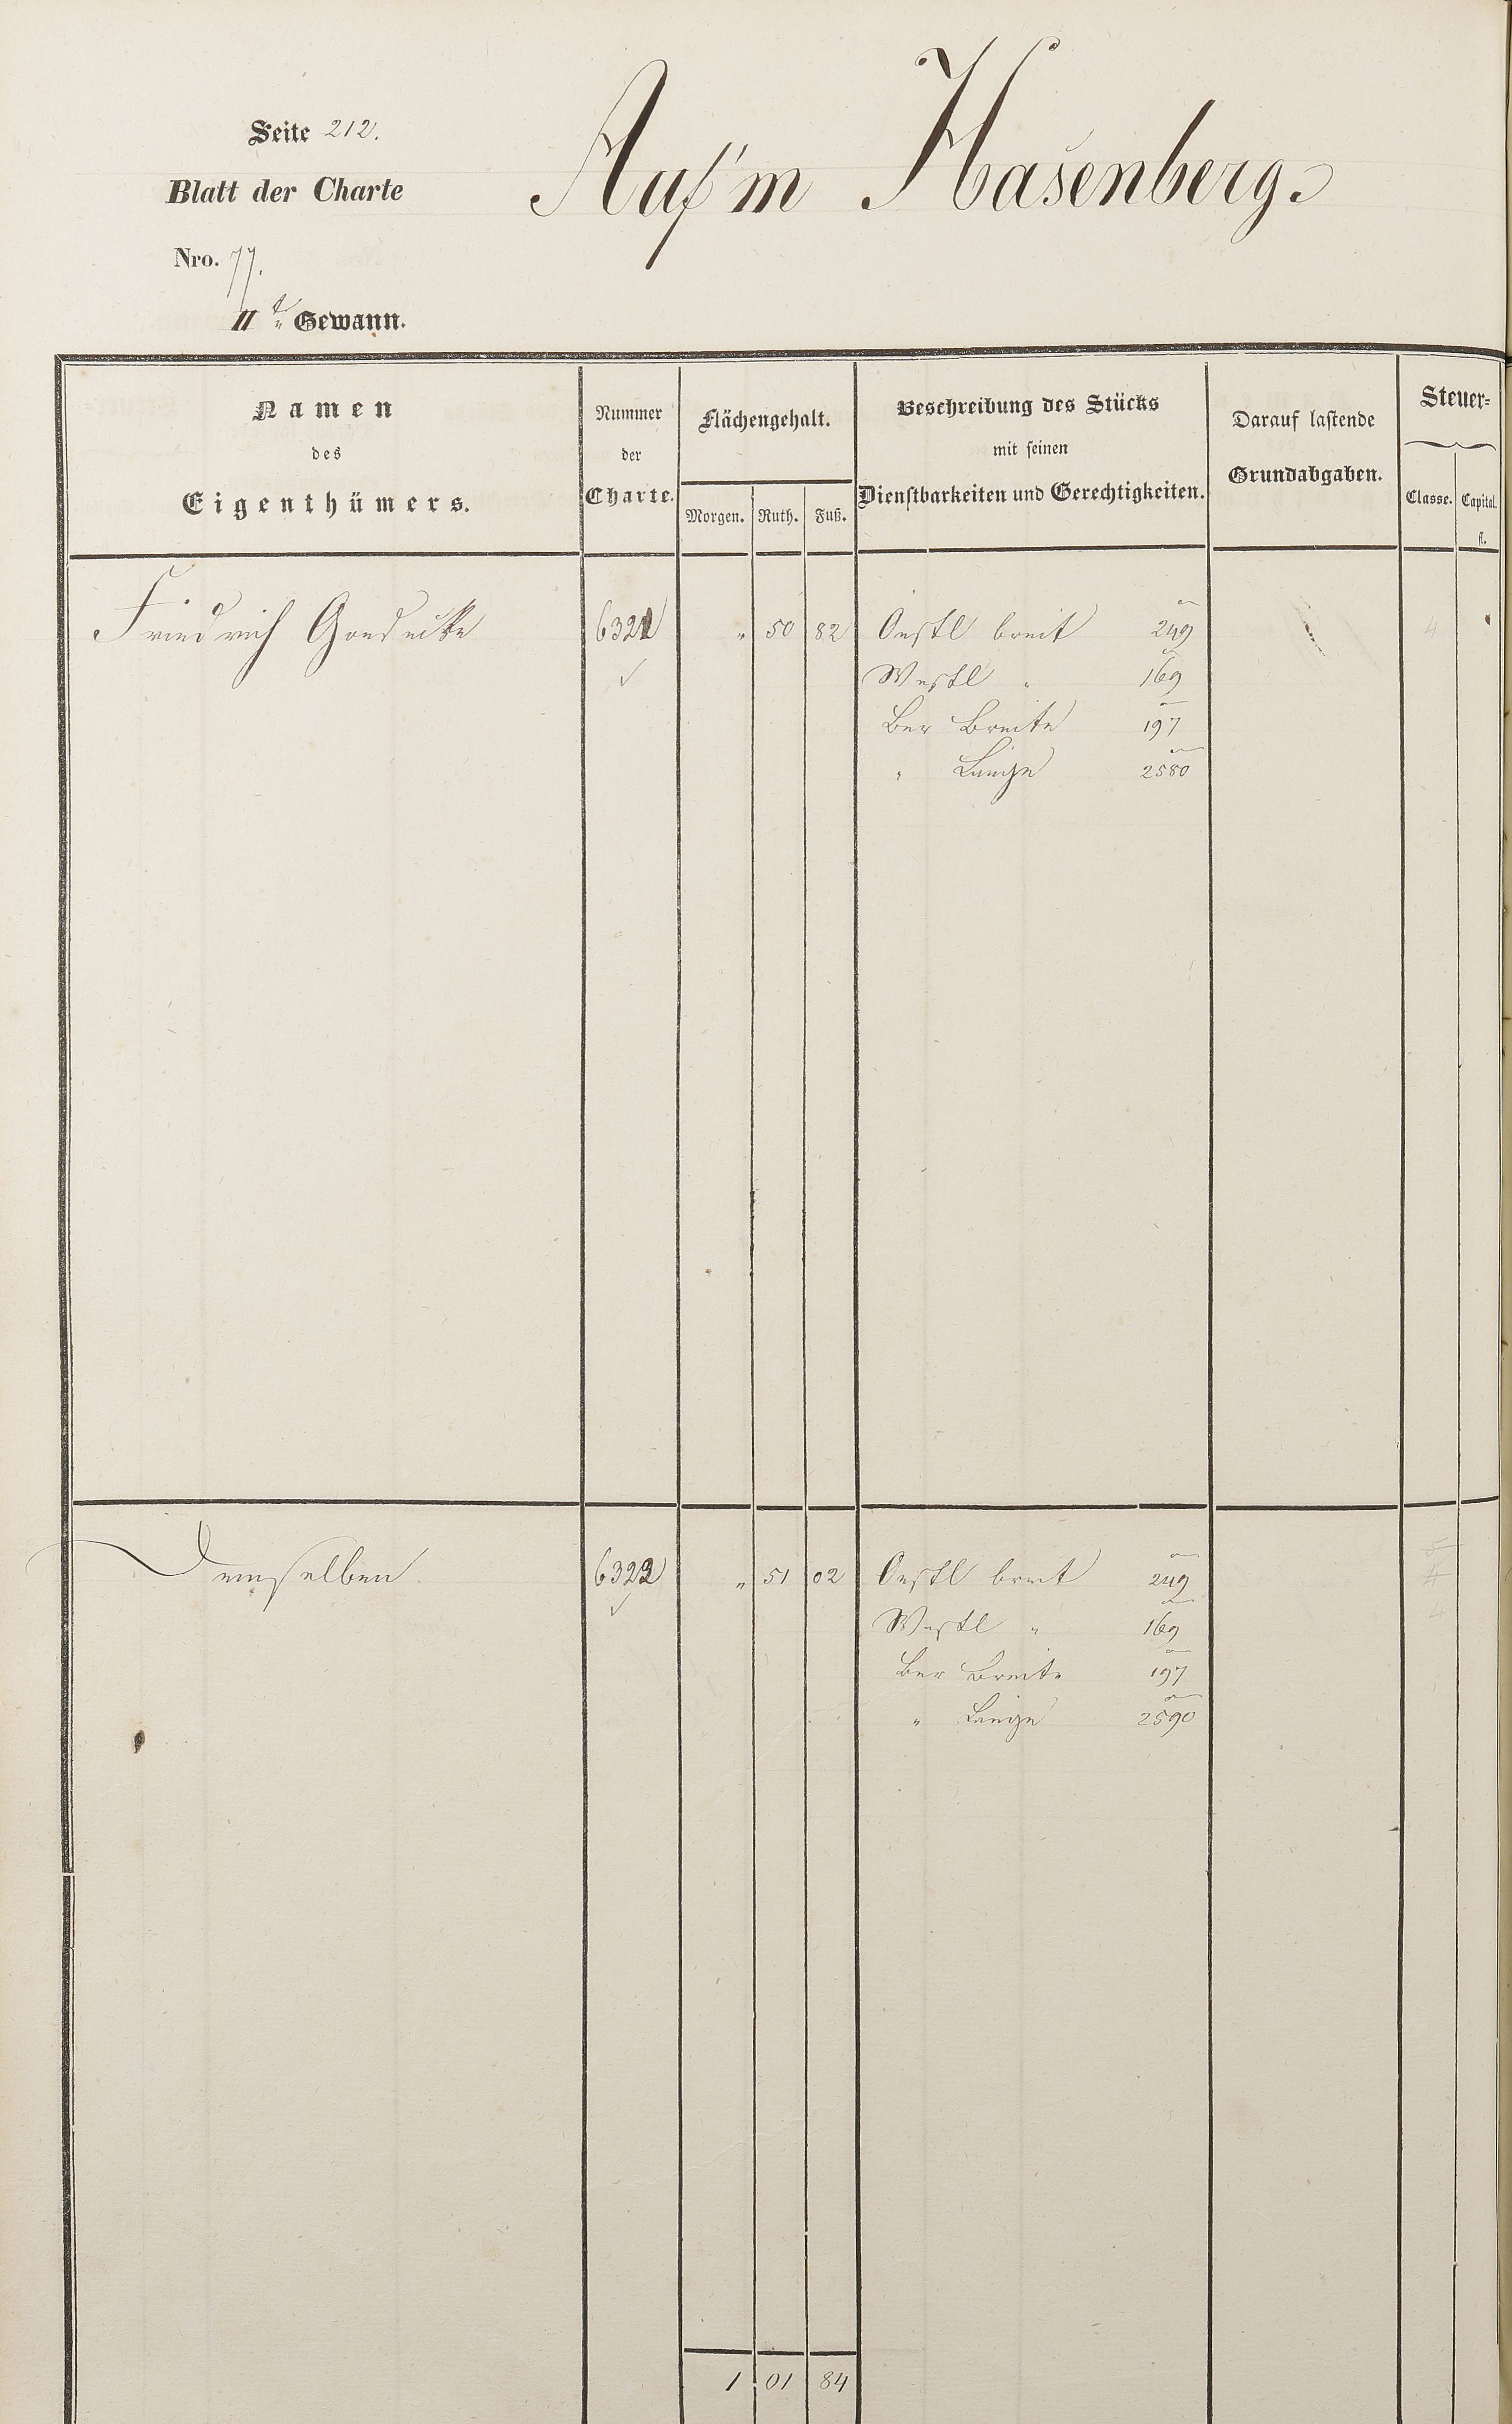 Seite 212.
Auf'm Hasenberg.
Blatt der Charte
Nro. 77.
IIte Gewann.
Namen
des
Eigenthümers.
Nummer
der
Charte.
Flächengehalt.
Morgen. Ruth. Fuß.
Beschreibung des Stücks
mit seinen
Dienstbarkeiten und Gerechtigkeiten.
Darauf lastende
Grundabgaben.
Steuer-
Classe. Capital.
fl.
Friedrich Goedecke 6321 " 50 82 Oestl breit 249 4
Westl " 169
Ber Breite 197
" Länge 2580
Demselben 6322 " 51 02 Oestl breit 249
Westl " 169
Ber Breite 197
" Länge 2590
1 01 84